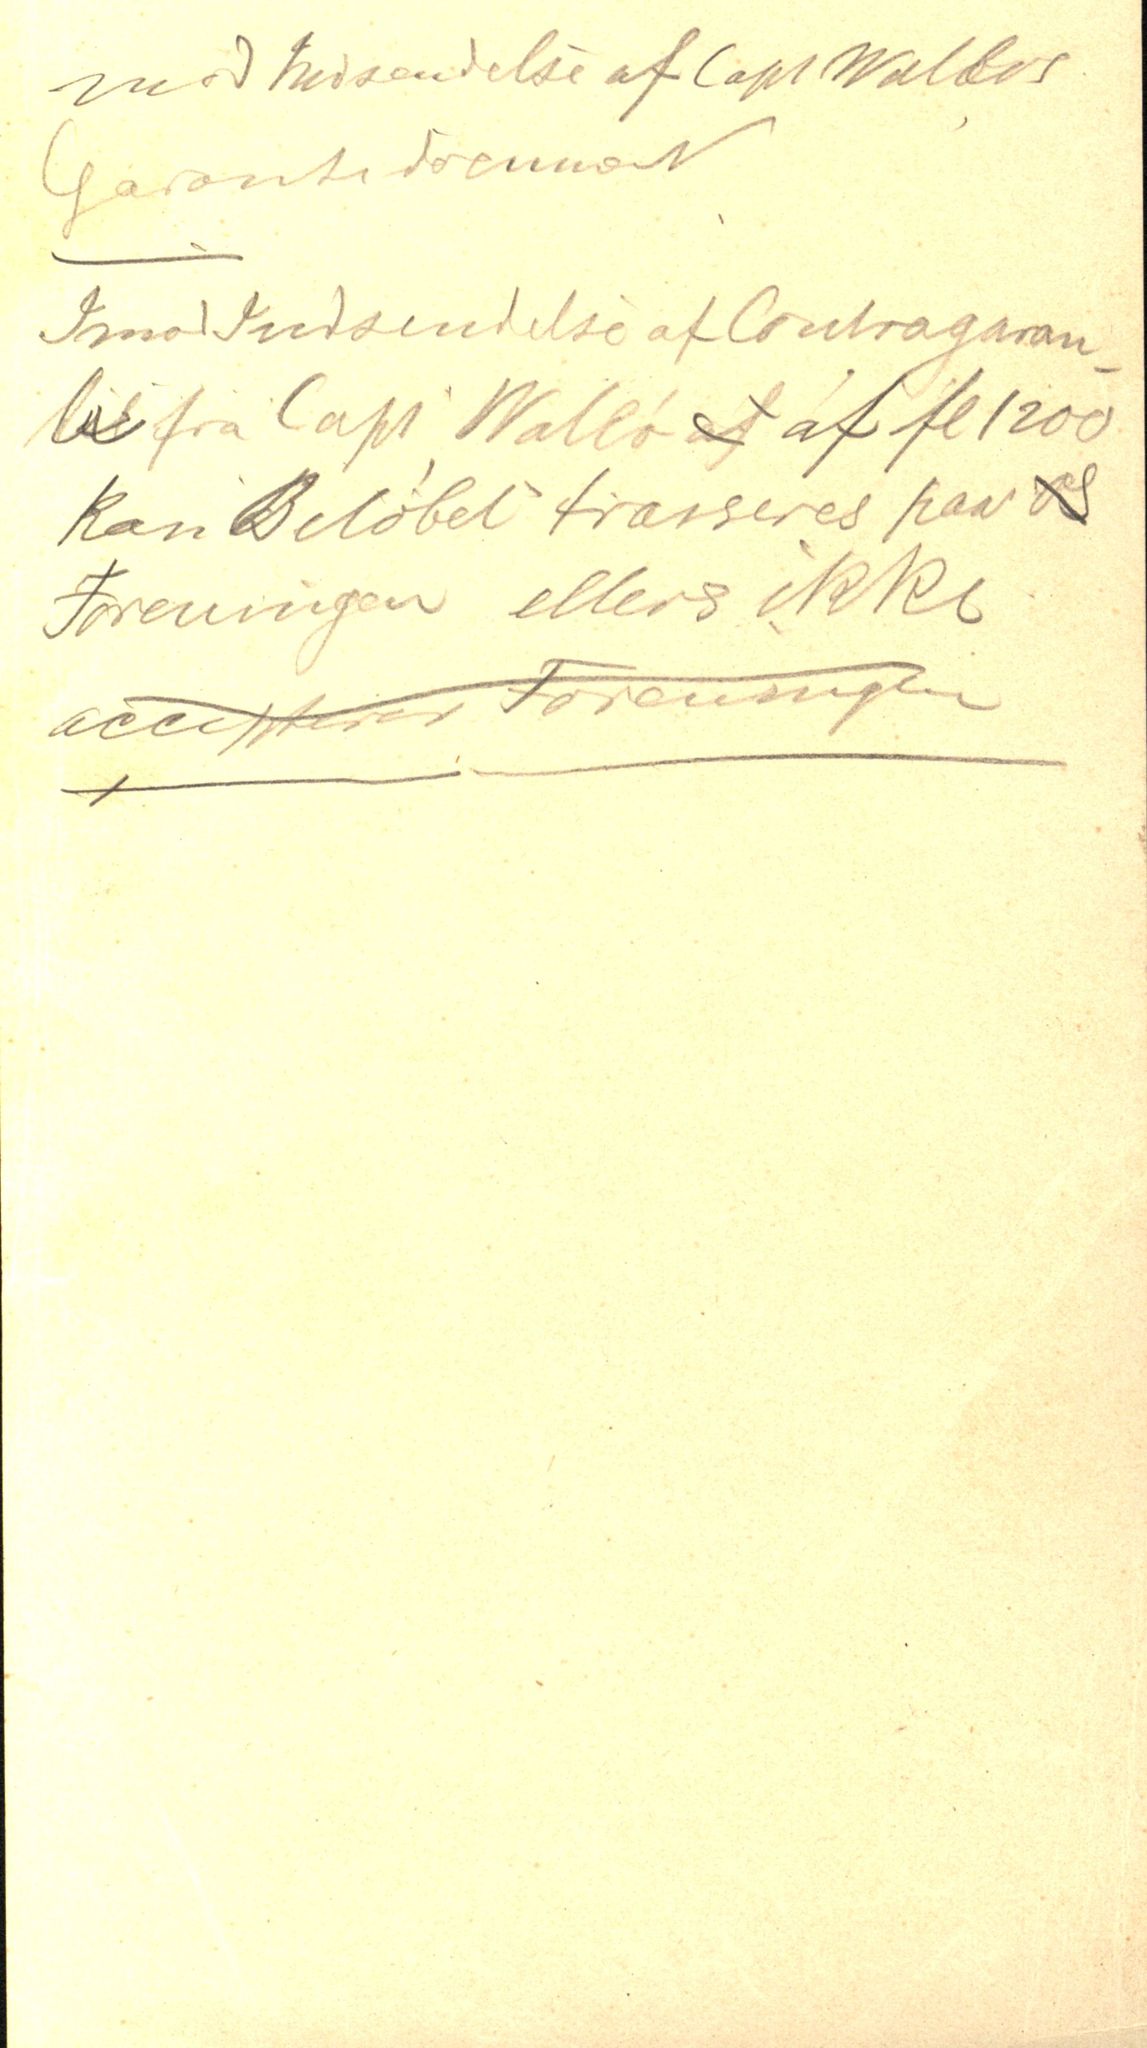 mod Indsendelse af Capt Walløs
Garantidocument
Imod Indsendelse af Contragaran-
tie fra Capt Wallø af af fl 1200
kan Beløbet trasseres paa os
Foreningen ellers ikke
accepterer Foreningen